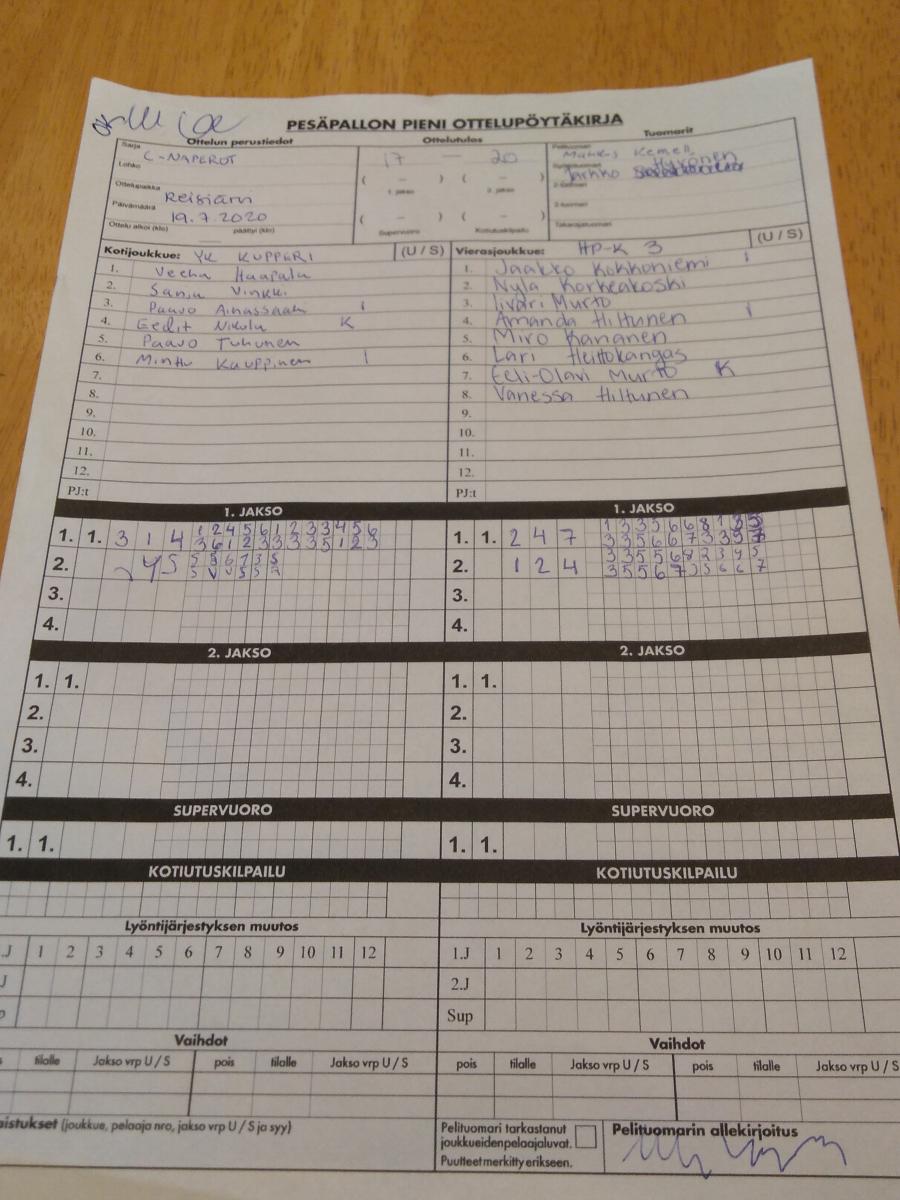 PESÄPALLON PIENI OTTELUPÖYTÄKIRJA
Ottelun perustiedot Ottelutulos Tuomarit
Sarja C-NAPEROT 17 – 20 Pelituomari
Lohko ( – ) ( – ) Jarkko Hyvönen
1. jakso 2. jakso 2-tuomari
Ottelupaikka Reisjärvi
Päivämäärä 19.7.2020 ( – ) ( – ) 3-tuomari
Ottelu alkoi (klo) päättyi (klo) Supervuoro Kotiutuskilpailu Takarajatuomari
Kotijoukkue: YK KUPPARI (U / S) Vierasjoukkue: HP-K 3 (U / S)
1. Veeha Haapala 1. Jaakko Kokkoniemi I
2. Sanja Vinkki 2. Nyla Korkeakoski
3. Paavo Ainassaari I 3. Iivari Murto
4. Eedit Nikula K 4. Amanda Hiltunen I
5. Paavo Tuhunen 5. Miro Kananen
6. Minttu Kauppinen I 6. Lari Heittokangas
7. 7. Eeli-Olavi Murto K
8. 8. Vanessa Hiltunen
9. 9.
10. 10.
11. 11.
12. 12.
PJ:t PJ:t
1. JAKSO 1. JAKSO
1. 1. 3 1 4 1 2 4 5 6 1 2 3 3 4 5 6 1. 1. 2 4 7 1 3 3 5 6 6 8 1
3 6 1 2 3 3 3 3 5 1 2 3 3 3 5 6 6 7 3 3 5 7
2. 4 5 5 5 6 7 3 5 2. 1 2 4 3 3 5 5 6 8 2 3 4 5
3 5 5 6 7 3 5 6 6 7
3. 3.
4. 4.
2. JAKSO 2. JAKSO
1. 1. 1. 1.
2. 2.
3. 3.
4. 4.
SUPERVUORO SUPERVUORO
1. 1. 1. 1.
KOTIUTUSKILPAILU KOTIUTUSKILPAILU
Lyöntijärjestyksen muutos Lyöntijärjestyksen muutos
.J 1 2 3 4 5 6 7 8 9 10 11 12 1.J 1 2 3 4 5 6 7 8 9 10 11 12
J 2.J
p Sup
Vaihdot Vaihdot
s tilalle Jakso vrp U / S pois tilalle Jakso vrp U / S pois tilalle Jakso vrp U / S pois tilalle Jakso vrp U / S
aistukset (joukkue, pelaaja nro, jakso vrp U / S ja syy) Pelituomari tarkastanut Pelituomarin allekirjoitus
joukkueidenpelaajaluvat.
Puutteet merkitty erikseen.